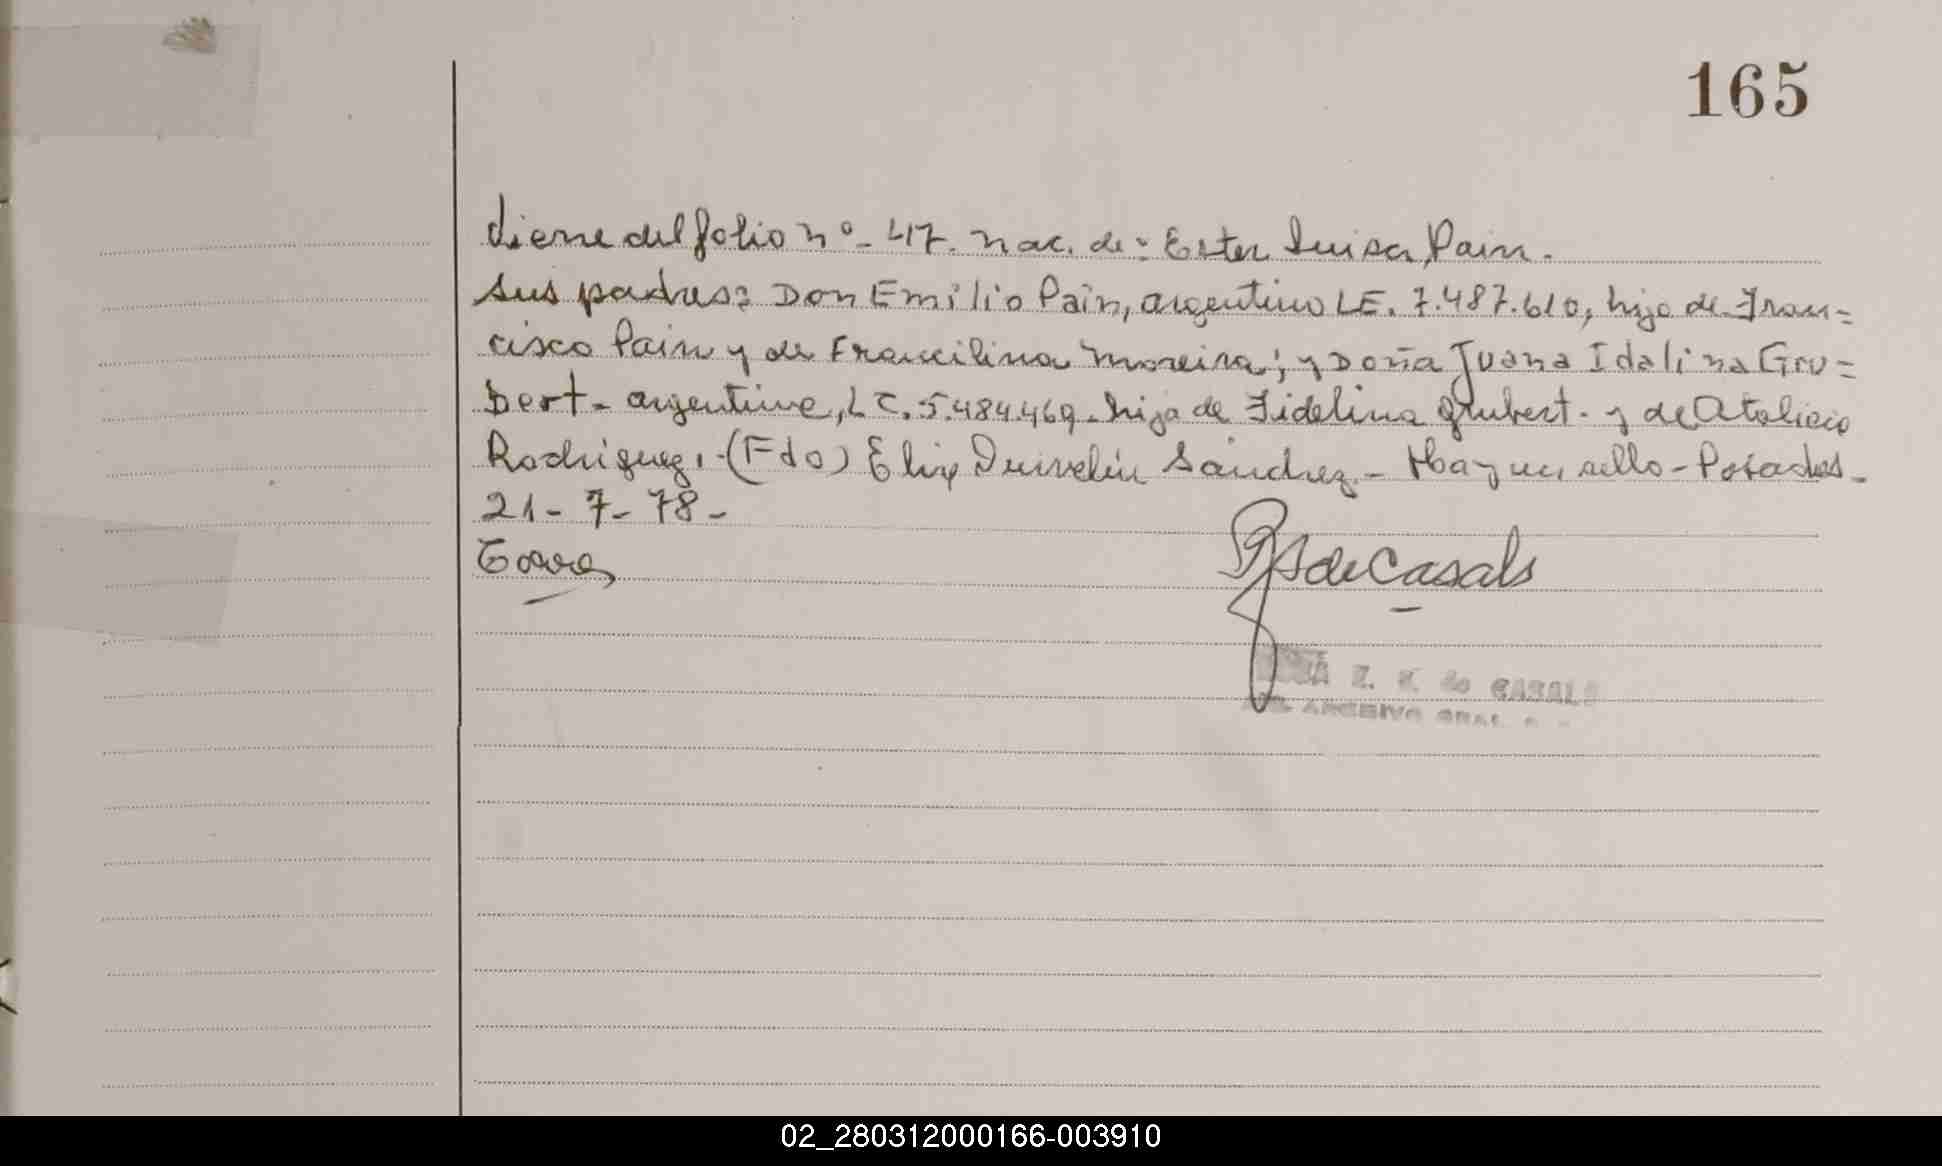 165
Viene del folio nº- 47. nac. de: Ester Luisa Pain.
sus padres: Don Emilio Pain, argentino LE. 7.487.610, hijo de Fran=
cisco Pain y de Francilina Moreira; y Doña Juana Idalina Gru=
bert- argentina, LC. 5.484.469- hija de Fidelina Grubert. y de Atalicio
Rodriguez. (Fdo) Sánchez- Hay un sello-Posadas-
21-7-78-
de Casals
de CASALS
ARCHIVO GRAL.
02_280312000166-003910